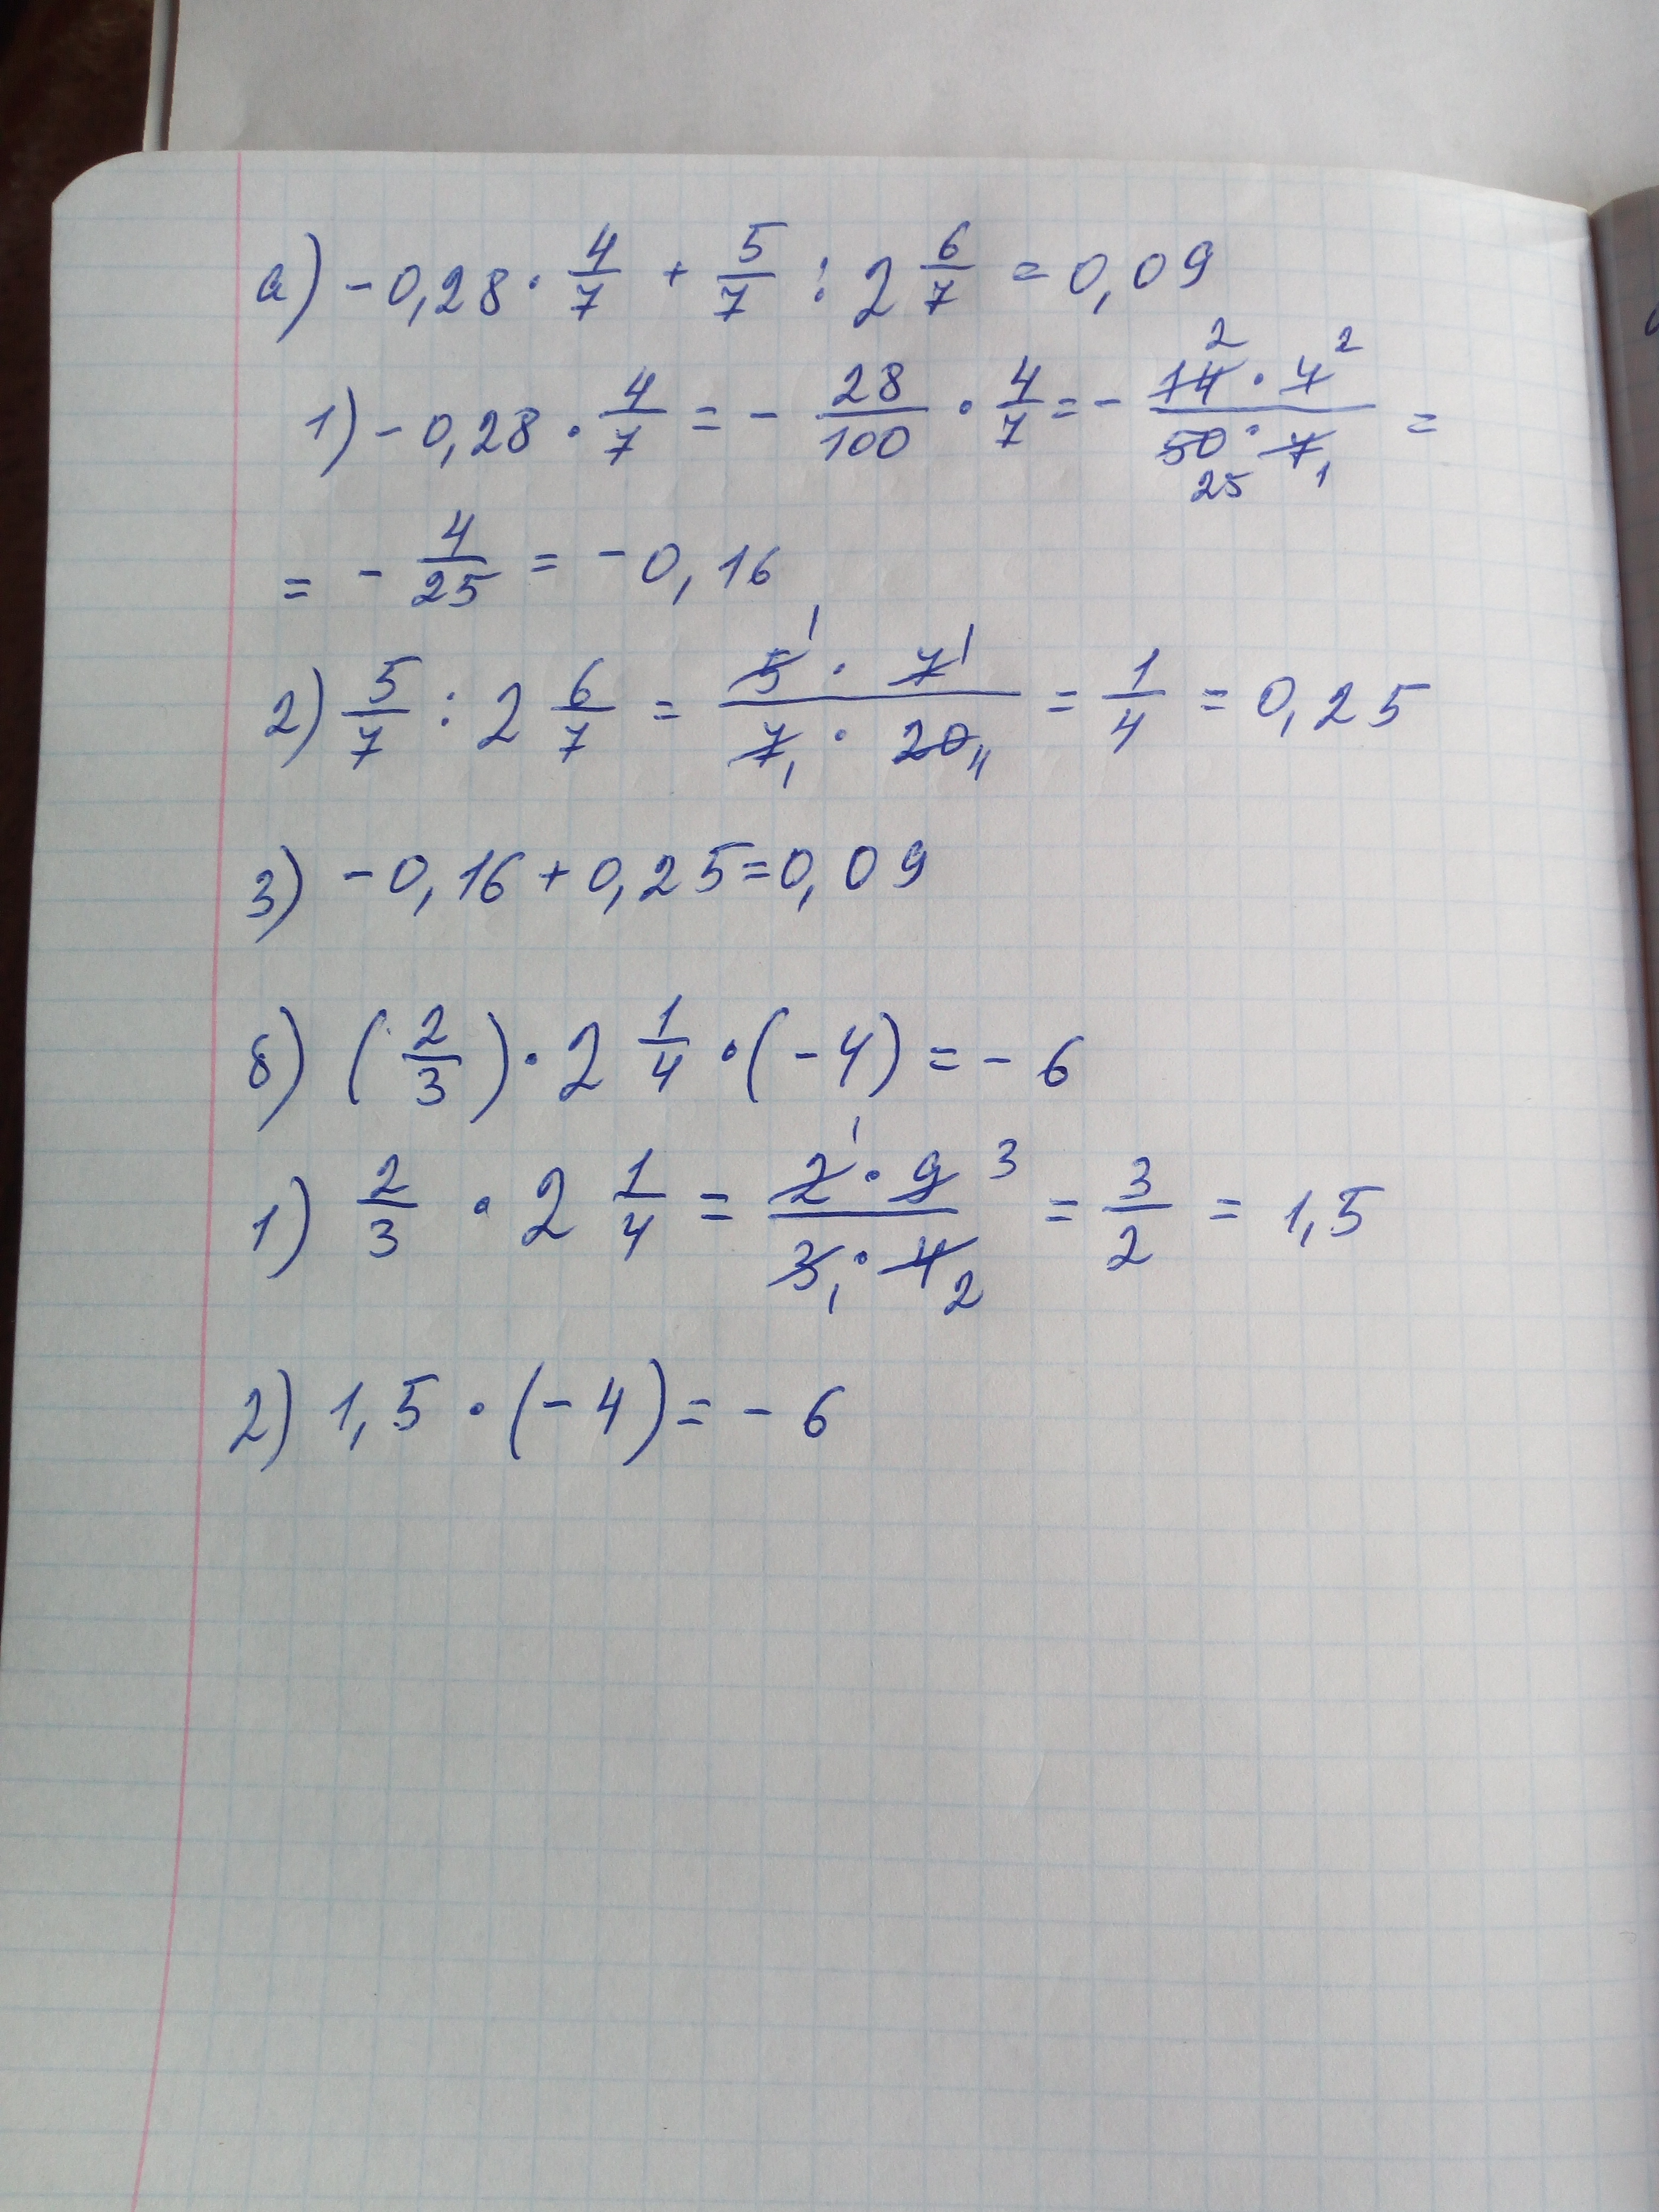 а) -0,28 · 4/7 + 5/7 : 2 6/7 = 0,09
1) -0,28 · 4/7 = - 28/100 · 4/7 = - (14 2 · 4 2)/(50 25 · 7 1) =
= - 4/25 = -0,16
2) 5/7 : 2 6/7 = (5 1 · 7 1)/(7 1 · 20 4) = 1/4 = 0,25
3) -0,16 + 0,25 = 0,09
б) (2/3) · 2 1/4 · (-4) = -6
1) 2/3 · 2 1/4 = (2 1 · 9 3)/(3 1 · 4 2) = 3/2 = 1,5
2) 1,5 · (-4) = -6